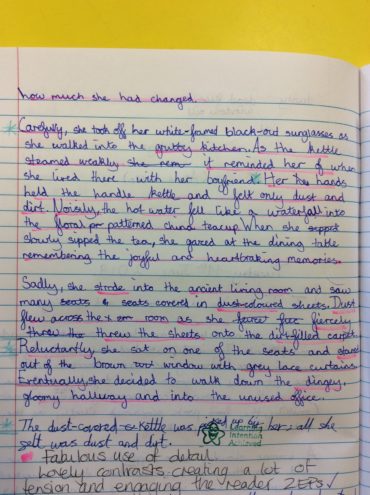 how much she had changed.
Carefully, she took off her white-framed black-out sunglasses as
she walked into the grutty kitchen. As the kettle
steamed weakly she rem it reminded her of when
she lived there with her boyfriend. Her hands
held the handle kettle and felt only dust and
dirt. Noisily, the hot water fell like a waterfall into
the floral patterned china teacup. When she sipped
slowly supped the tea, she gazed at the dining table
remembering the joyful and heartbraking memories.
Sadly, she strode into the ancient living room and saw
many seats & seats covered in dust-coloured sheets. Dust
flew across the room as she fiercley
threw the threw the sheets onto the dirt-filled carpet.
Reluctantly, she sat on one of the seats and stared
out of the brown window with grey lace curtains.
Eventually, she decided to walk down the dingey,
gloomy hallway and into the unused office.
The dust-covered kettle was picked up by her; all she
felt was dust and dirt.
Learning
Intention
Achieved
Fabulous use of detail
Lovely contrasts creating a lot of
tension and engaging the reader ZEPS ✓